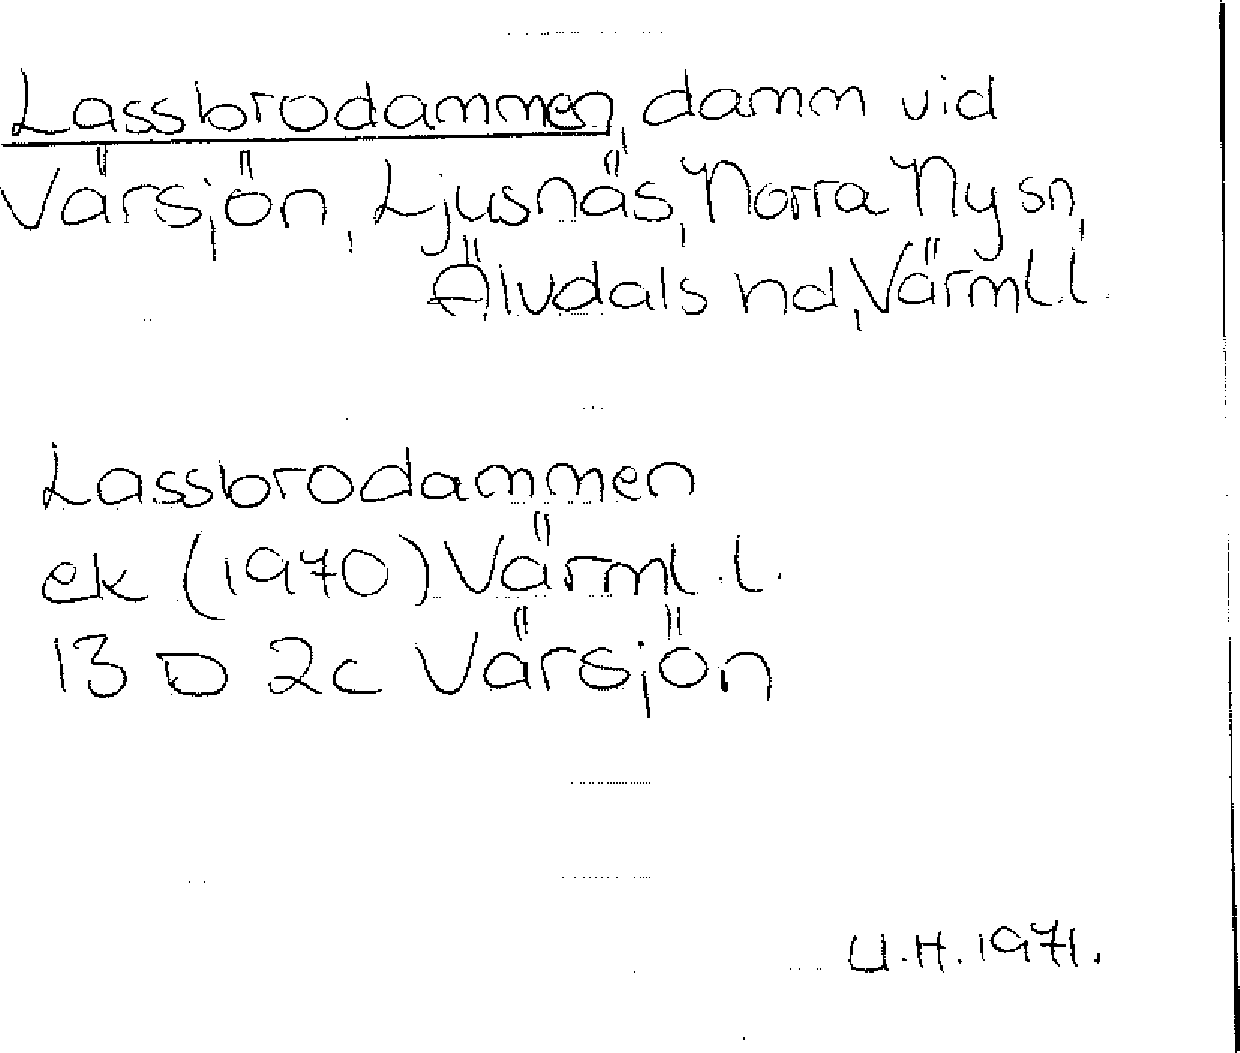 Lassbrodammen, damm vid
Värsjön, Ljusnäs, Norra Ny sn,
Älvdals hd, Värml. l.
Lassbrodammen
ek (1970) Värml. l.
13 D 2c Värsjön
U.H. 1971.